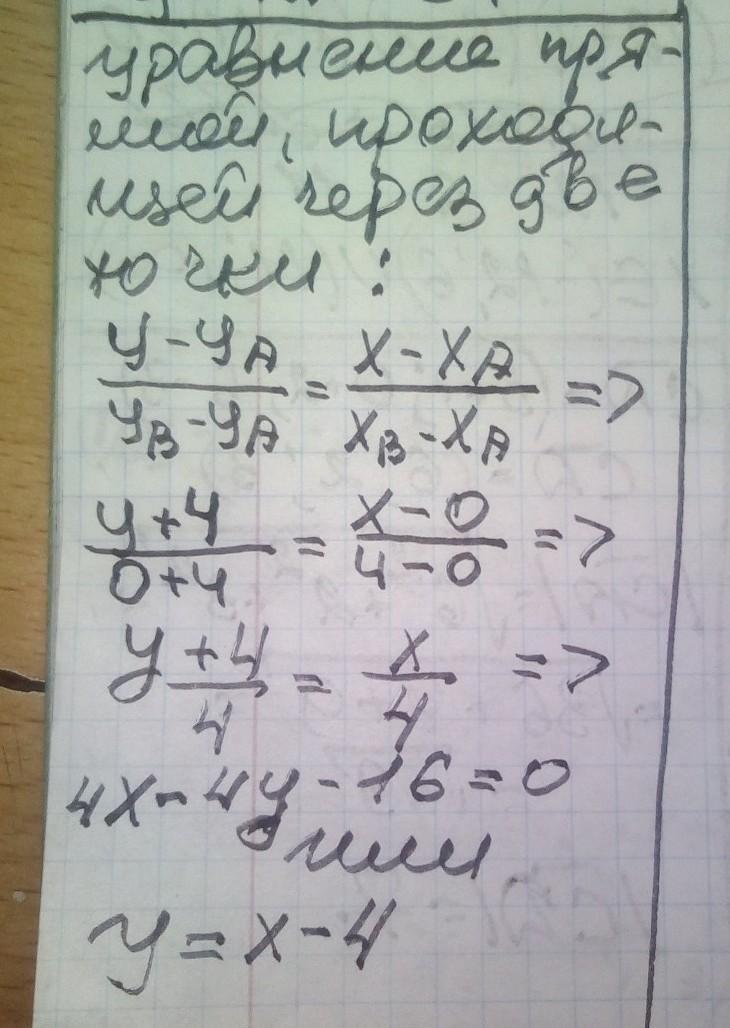 уравнение пря-
мой, проходя-
щей через две
точки :
y - yA / yB - yA = x - xA / xB - xA =>
y + 4 / 0 + 4 = x - 0 / 4 - 0 =>
y + 4 / 4 = x / 4 =>
4x - 4y - 16 = 0
или
y = x - 4